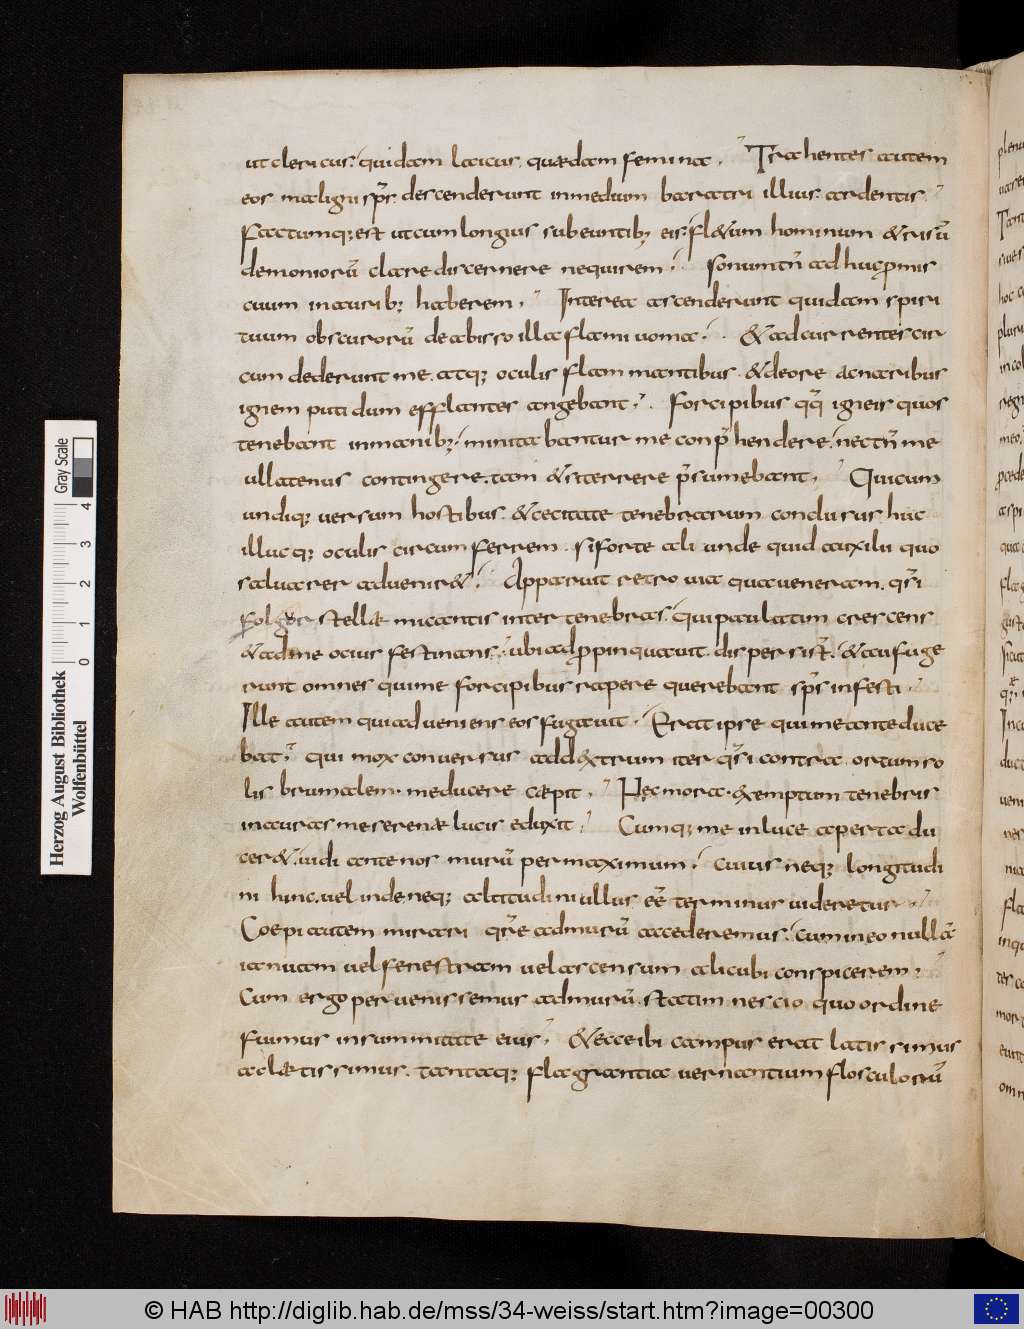 ut clericus. quidam laicus. quædam femina. Trahentes autem
eos maligni sp̄s. descenderunt in medium baratri illius ardentis.
Factumq; est ut cum longius subeuntib; eis. fl&um hominum & risū
demoniorū clare discernere nequirem. sonum tn̄ adhuc promis
cuum in aurib; haberem. Interea ascenderunt quidam spiri
tuum obscurorū de abisso illa flamiuoma. & adcurrentes cir
cum dederunt me. atq; oculis flammantibus. & de ore ac naribus
ignem putidum efflantes angebant. Forcipibus qq̄ igneis quos
tenebant in manib;. minitabantur me conp̄hendere. nec tn̄ me
ullatenus contingere. tam & si terrere p̄sumebant. Qui cum
undiq; uersum hostibus. & cecitate tenebrarum conclusus. huc
illucq; oculis circumferrem. si forte ali unde quid auxilii quo
saluarer aduenir&. Apparuit retro uia qua ueneram. qs̄i
folgor stellæ micantis inter tenebras. qui paulatim crescens
& ad me ocius festinans. ubi adpropinquauit. dispersi st̄. & aufuge
runt omnes qui me forcipibus rapere querebant sp̄s infesti.
Ille autem qui adueniens eos fugauit. Erat ipse qui me ante duce
bat. qui mox conuersus ad d&trum iter qs̄i contra ortum so
lis brumalem. me ducere cæpit. Nec mora. exemptum tenebris
in auras me serenæ lucis eduxit. Cumq; me in luce aperta du
cer&. uidi ante nos murū permaximum. cuius neq; longitudi
ni hinc. uel inde neq; altitudini ullus eē terminus uideretur.
Coepi autem mirari qr̄e ad murū accederemus. cum in eo nullā
ianuam uel fenestram uel ascensum alicubi conspicerem.
Cum ergo peruenissemus ad murū. statim nescio quo ordine
fuimus in summitate eius. & ecce ibi campus erat latissimus
ac lætissimus. tantaq; flagrantia uernantium flosculorū
Herzog August Bibliothek
Wolfenbüttel
Gray Scale
0 1 2 3 4
© HAB http://diglib.hab.de/mss/34-weiss/start.htm?image=00300